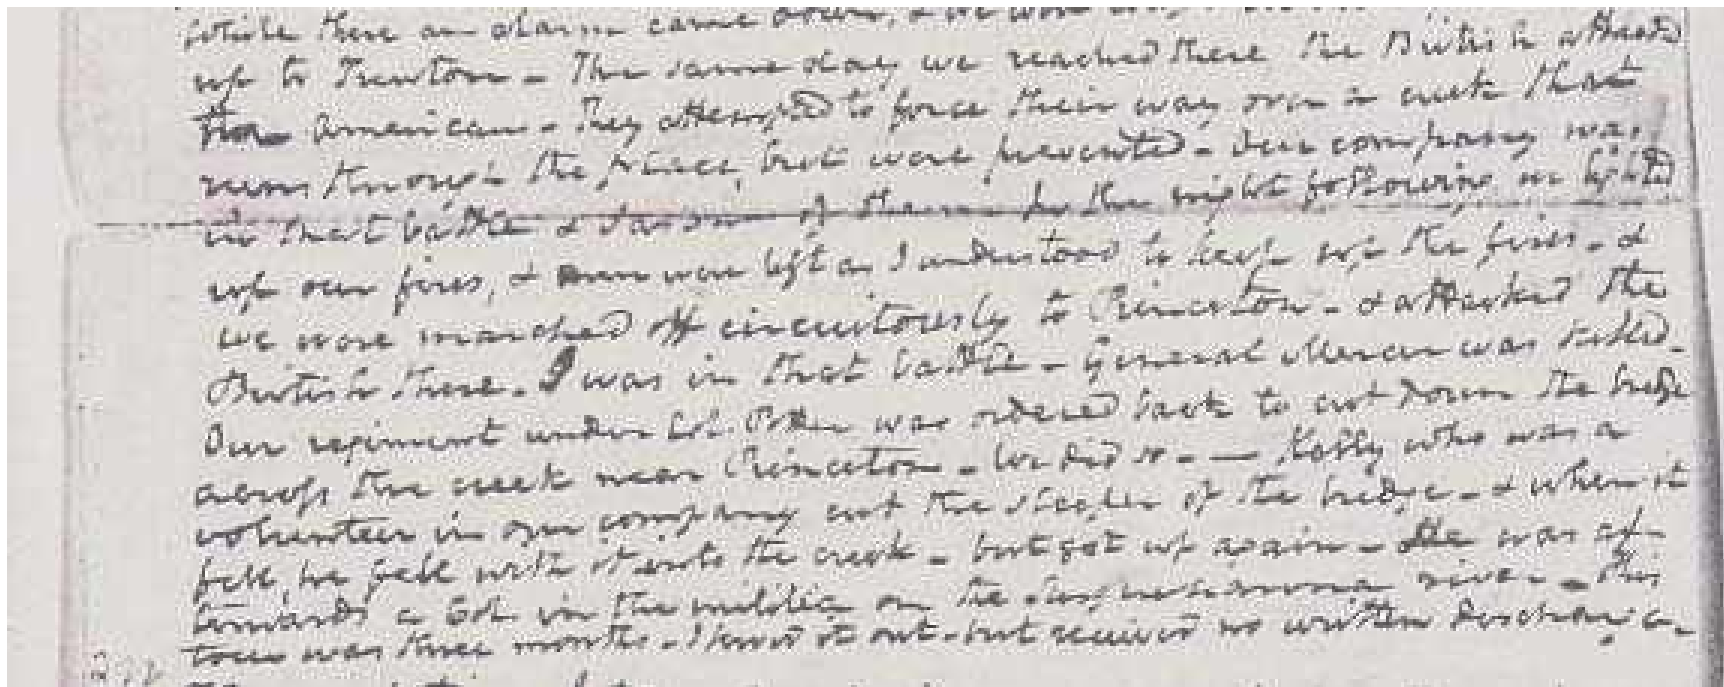 while there an alarm came down, & we were
up to Trenton - The same day we reached there the British attacked
the American - They attempted to force their way over a creek that
runs through the place, but were prevented - Our company was
in that battle & of them - In the night following we lighted
up our fires, & men were left as I understood to keep up the fires - &
we were marched off circuitously to Princeton - & attacked the
British there. I was in that battle - General Mercer was killed.
Our regiment under Col. Potter was ordered back to cut down the bridge
across the creek near Princeton - We did so - — Kelly who was a
volunteer in our company cut the sleeper of the bridge - & when it
fell, he fell with it into the creek - but got up again - He was af-
terwards a Col. in the militia on the Susquehanna river - This
tour was three months - I served it out - but received no written discharge